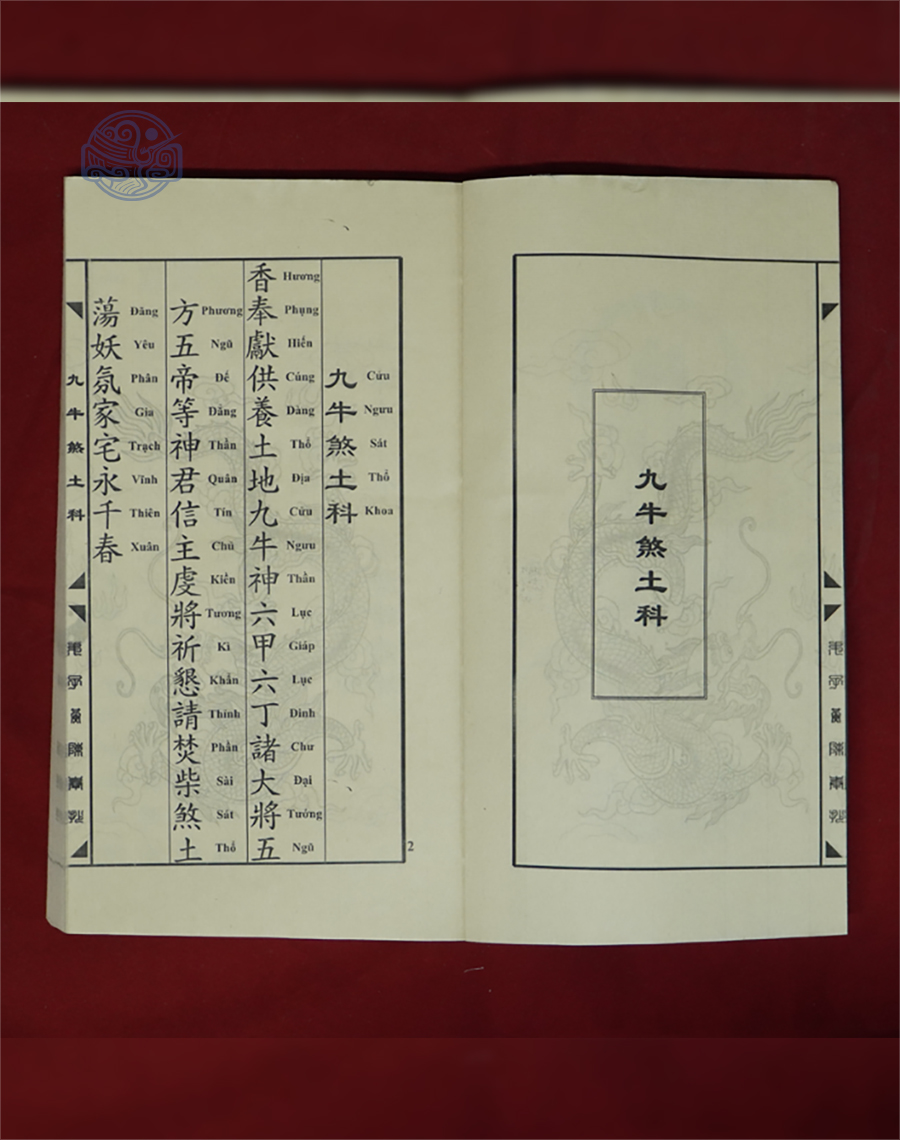 九牛煞土科
九牛煞土科
Cứu Ngưu Sát Thổ Khoa
香奉獻供養土地九牛神六甲六丁諸大將五
Hương Phụng Hiến Cúng Dàng Thổ Địa Cứu Ngưu Thần Lục Giáp Lục Dinh Chư Đại Tướng Ngũ
方五帝等神君信主虔將祈懇請焚柴煞土
Phương Ngũ Đế Đẳng Thần Quân Tín Chủ Kiền Tương Kì Khẩn Thỉnh Phần Sài Sát Thổ
蕩妖氛家宅永千春
Đãng Yêu Phân Gia Trạch Vĩnh Thiên Xuân
九牛煞土科
2